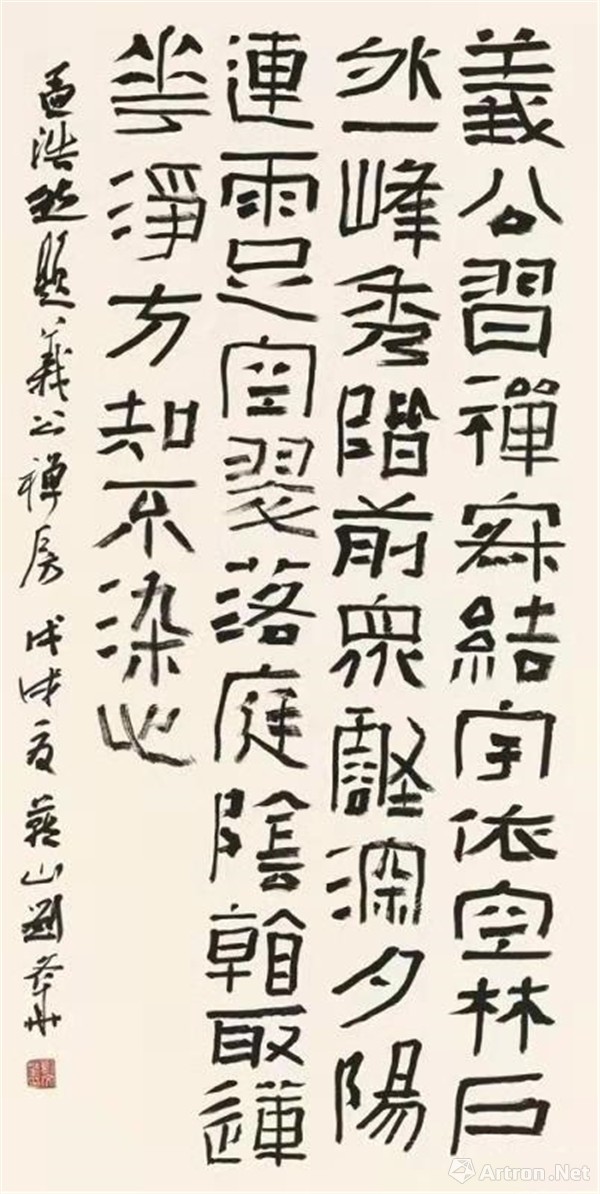 義公習禪寂結宇依空林戶
外一峰秀階前眾壑深夕陽
連雨足空翠落庭陰看取蓮
花淨方知不染心
孟浩然題義公禪房 戊戌夏 山劉
Artron.Net